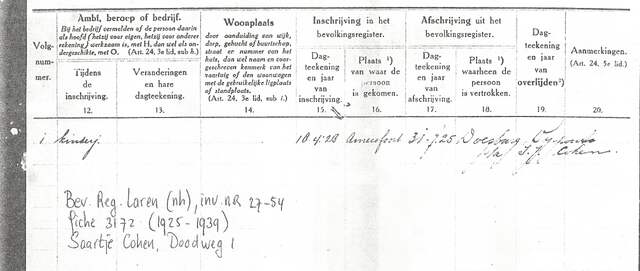 Volg-
num-
mer.
Ambt, beroep of bedrijf.
Bij het bedrijf vermelden of de persoon daarin
als hoofd (hetzij voor eigen, hetzij voor andere
rekening) werkzaam is, met H. dan wel als on-
dergeschikte, met O. (Art. 24, 3e lid, sub h.)
Tijdens
de
inschrijving.
12.
Veranderingen
en hare
dagteekening.
13.
Woonplaats
door aanduiding van wijk,
dorp, gehucht of buurtschap,
straat en nummer van het
huis, dan wel naam en voor-
geschreven kenmerk van het
vaartuig of den woonwagen
met de gebruikelijke ligplaats
of standplaats.
(Art. 24, 3e lid, sub i.)
14.
Inschrijving in het
bevolkingsregister.
Dag-
teekening
en jaar
van
inschrijving.
15.
Plaats ¹)
van waar de
persoon
is gekomen.
16.
Afschrijving uit het
bevolkingsregister.
Dag-
teekening
en jaar
van
afschrijving.
17.
Plaats ¹)
waarheen de
persoon
is vertrokken.
18.
Dag-
teekening
en jaar
van
overlijden²)
19.
Aanmerkingen.
(Art. 24, 5e lid.)
20.
1 kinderj. 10.4.28 Amersfoort 31.7.25 Doesburg
Cohen.
Bev. Reg. Laren (nh), inv. nr 27-54
fiche 3172 (1925-1939)
Saartje Cohen, Doodweg 1